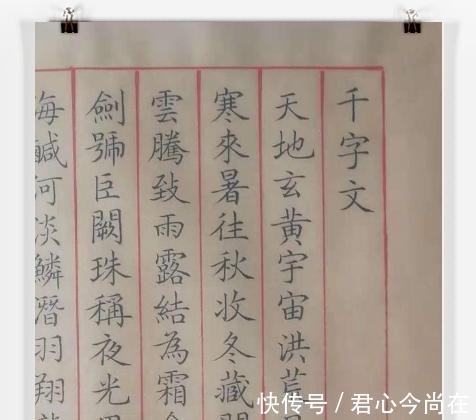 千字文
天地玄黃宇宙洪荒
寒來暑往秋收冬藏
雲騰致雨露結為霜
劍號臣闕珠稱夜光
海鹹河淡鱗潛羽翔
快传号 / 君心今尚在